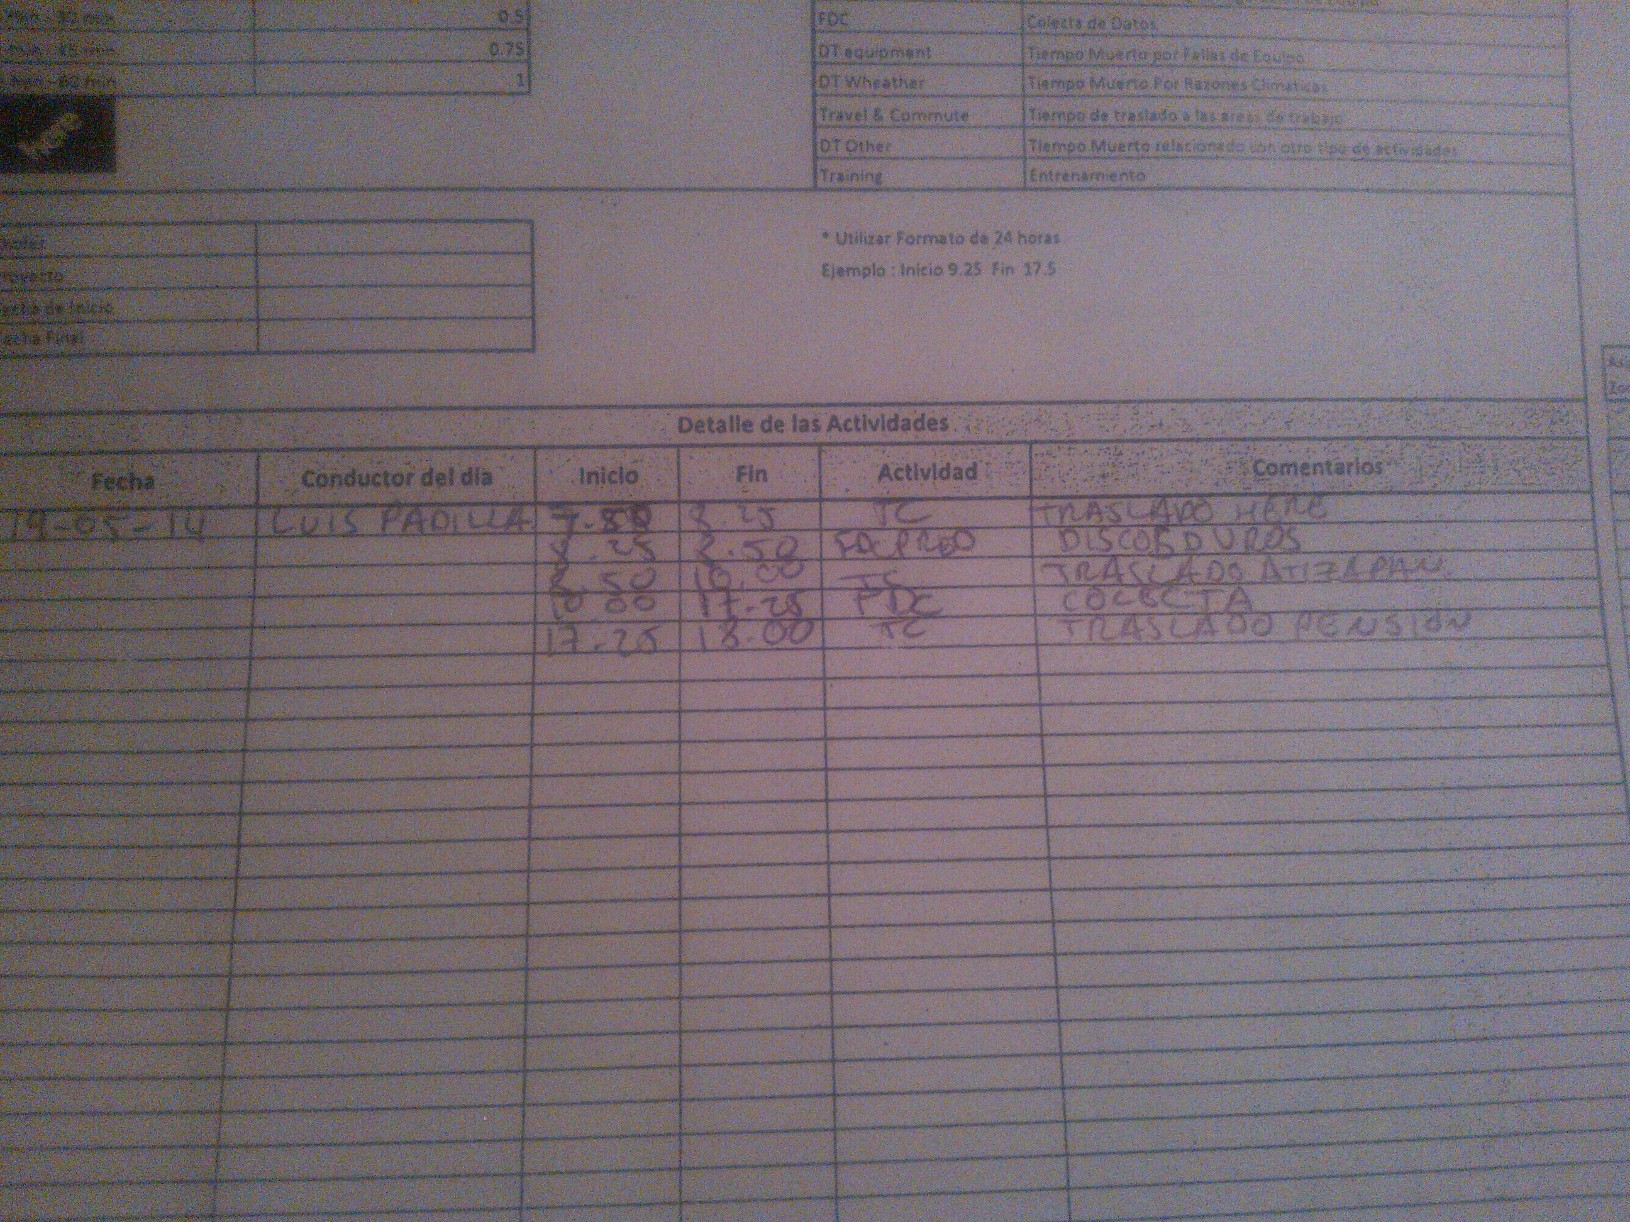 - 30 min 0.5
- 45 min 0.75
- 60 min 1
FDC Colecta de Datos
DT equipment Tiempo Muerto por Fallas de Equipo
DT Wheather Tiempo Muerto Por Razones Climaticas
Travel & Commute Tiempo de traslado a las areas de trabajo
DT Other Tiempo Muerto relacionado con otro tipo de actividades
Training Entrenamiento
Fecha de Inicio
Fecha Final
* Utilizar Formato de 24 horas
Ejemplo : Inicio 9.25 Fin 17.5
Detalle de las Actividades
Fecha Conductor del día Inicio Fin Actividad Comentarios
19-05-14 LUIS PADILLA 7.50 8.25 TC TRASLADO HERE
8.25 8.50 FDCPROD DISCOS DUROS
8.50 10.00 TC TRASLADO ATIZAPAN.
10.00 17.25 FDC COLECTA
17.25 18.00 TC TRASLADO PENSION